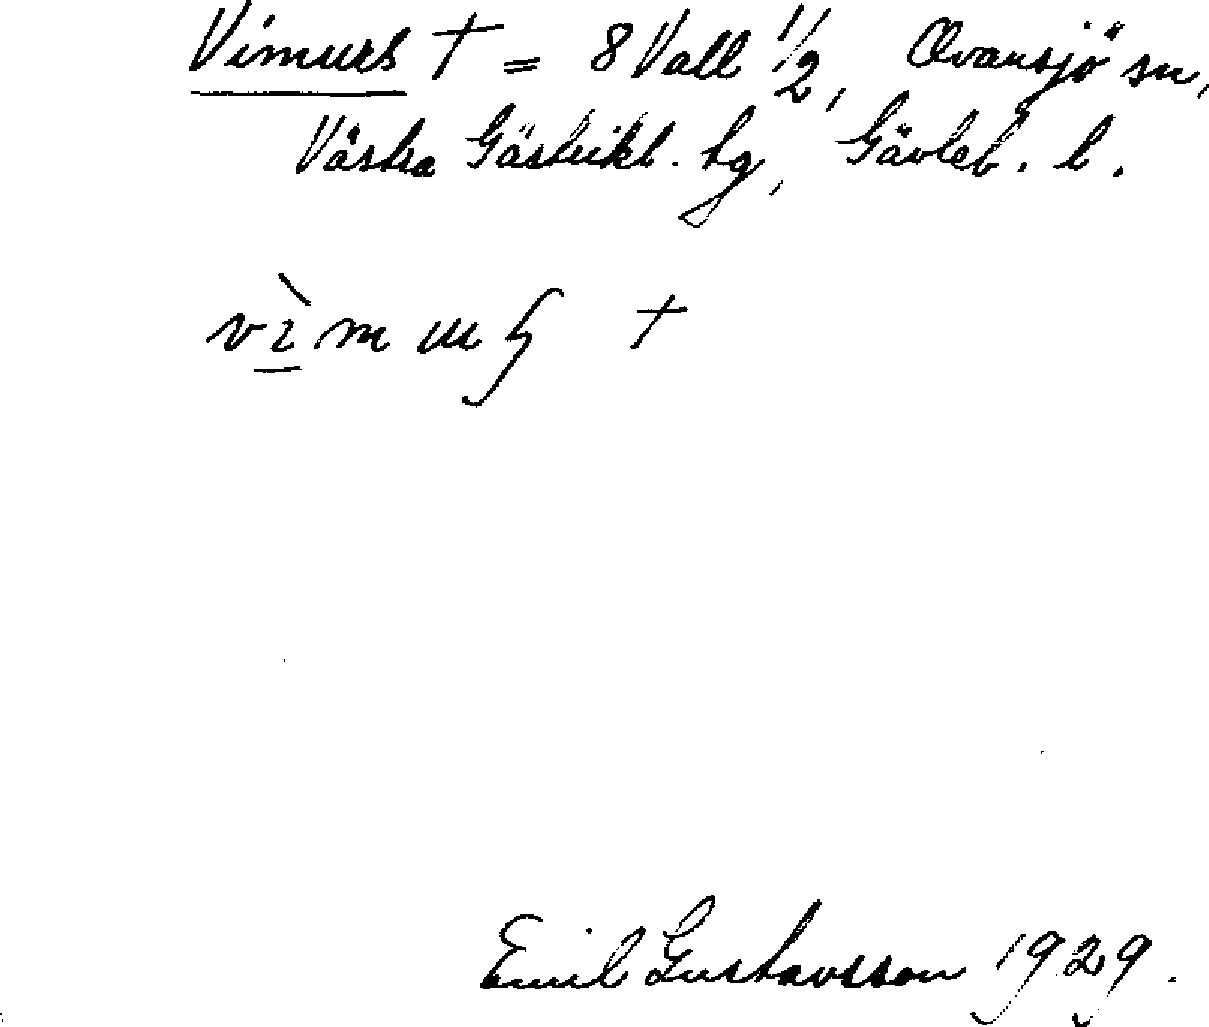 Vimurs † = 8 Vall 1/2, Ovansjö sn,
Västra Gästrikl. tg, Gävleb. l.
†
Emil Gustavsson 1929.